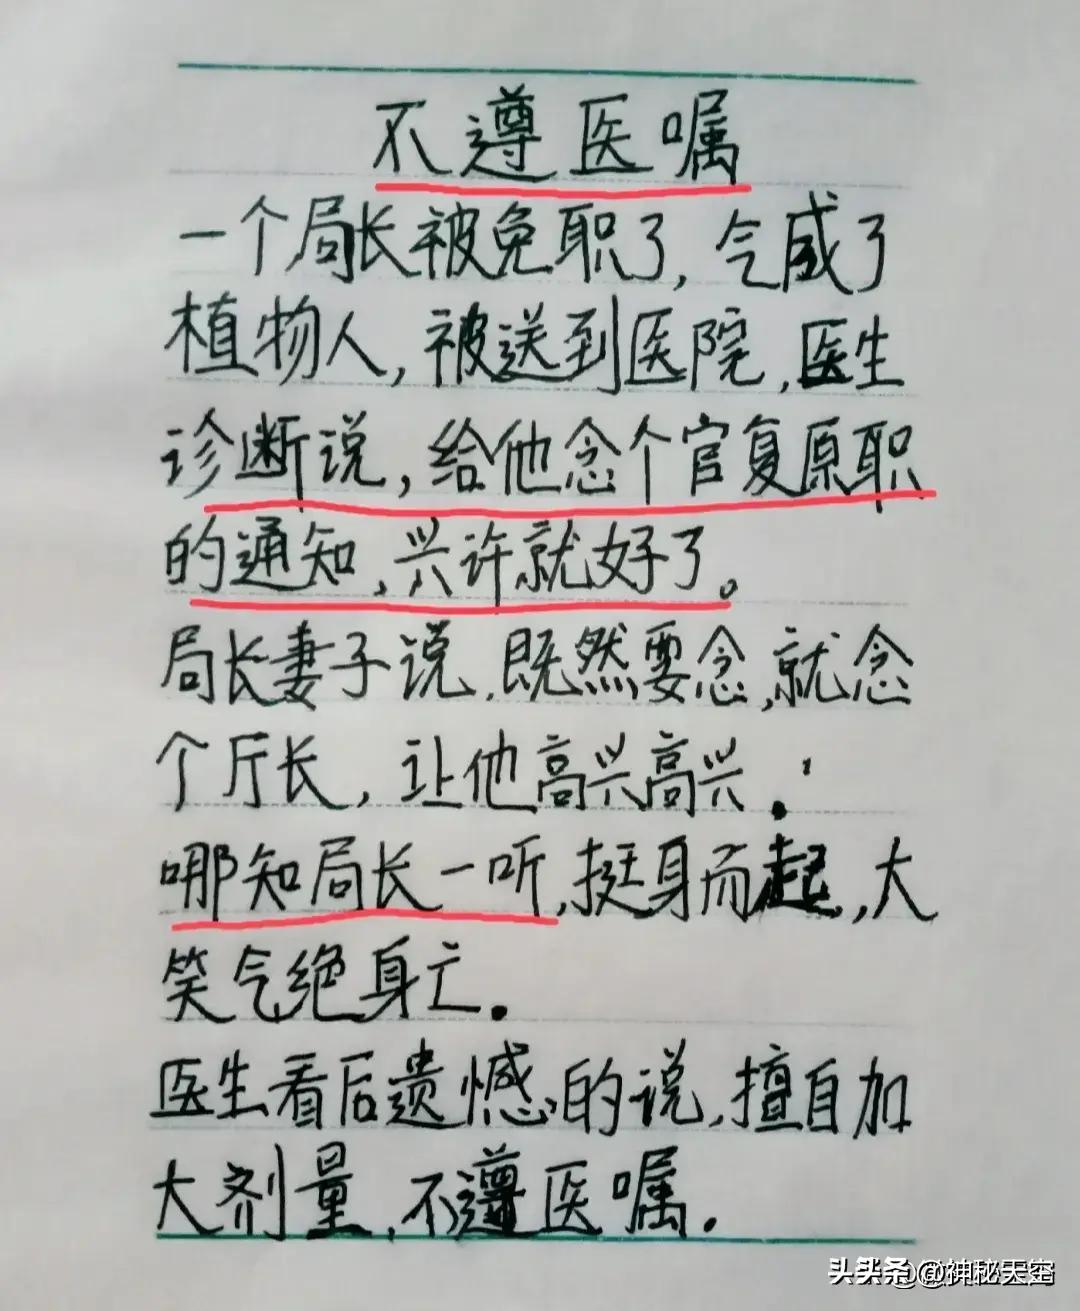 不遵医嘱
一个局长被免职了,气成了
植物人,被送到医院,医生
诊断说,给他念个官复原职
的通知,兴许就好了。
局长妻子说,既然要念,就念
个厅长,让他高兴高兴.
哪知局长一听,挺身而起,大
笑气绝身亡.
医生看后遗憾的说,擅自加
大剂量,不遵医嘱.
头头条@@神秘天空